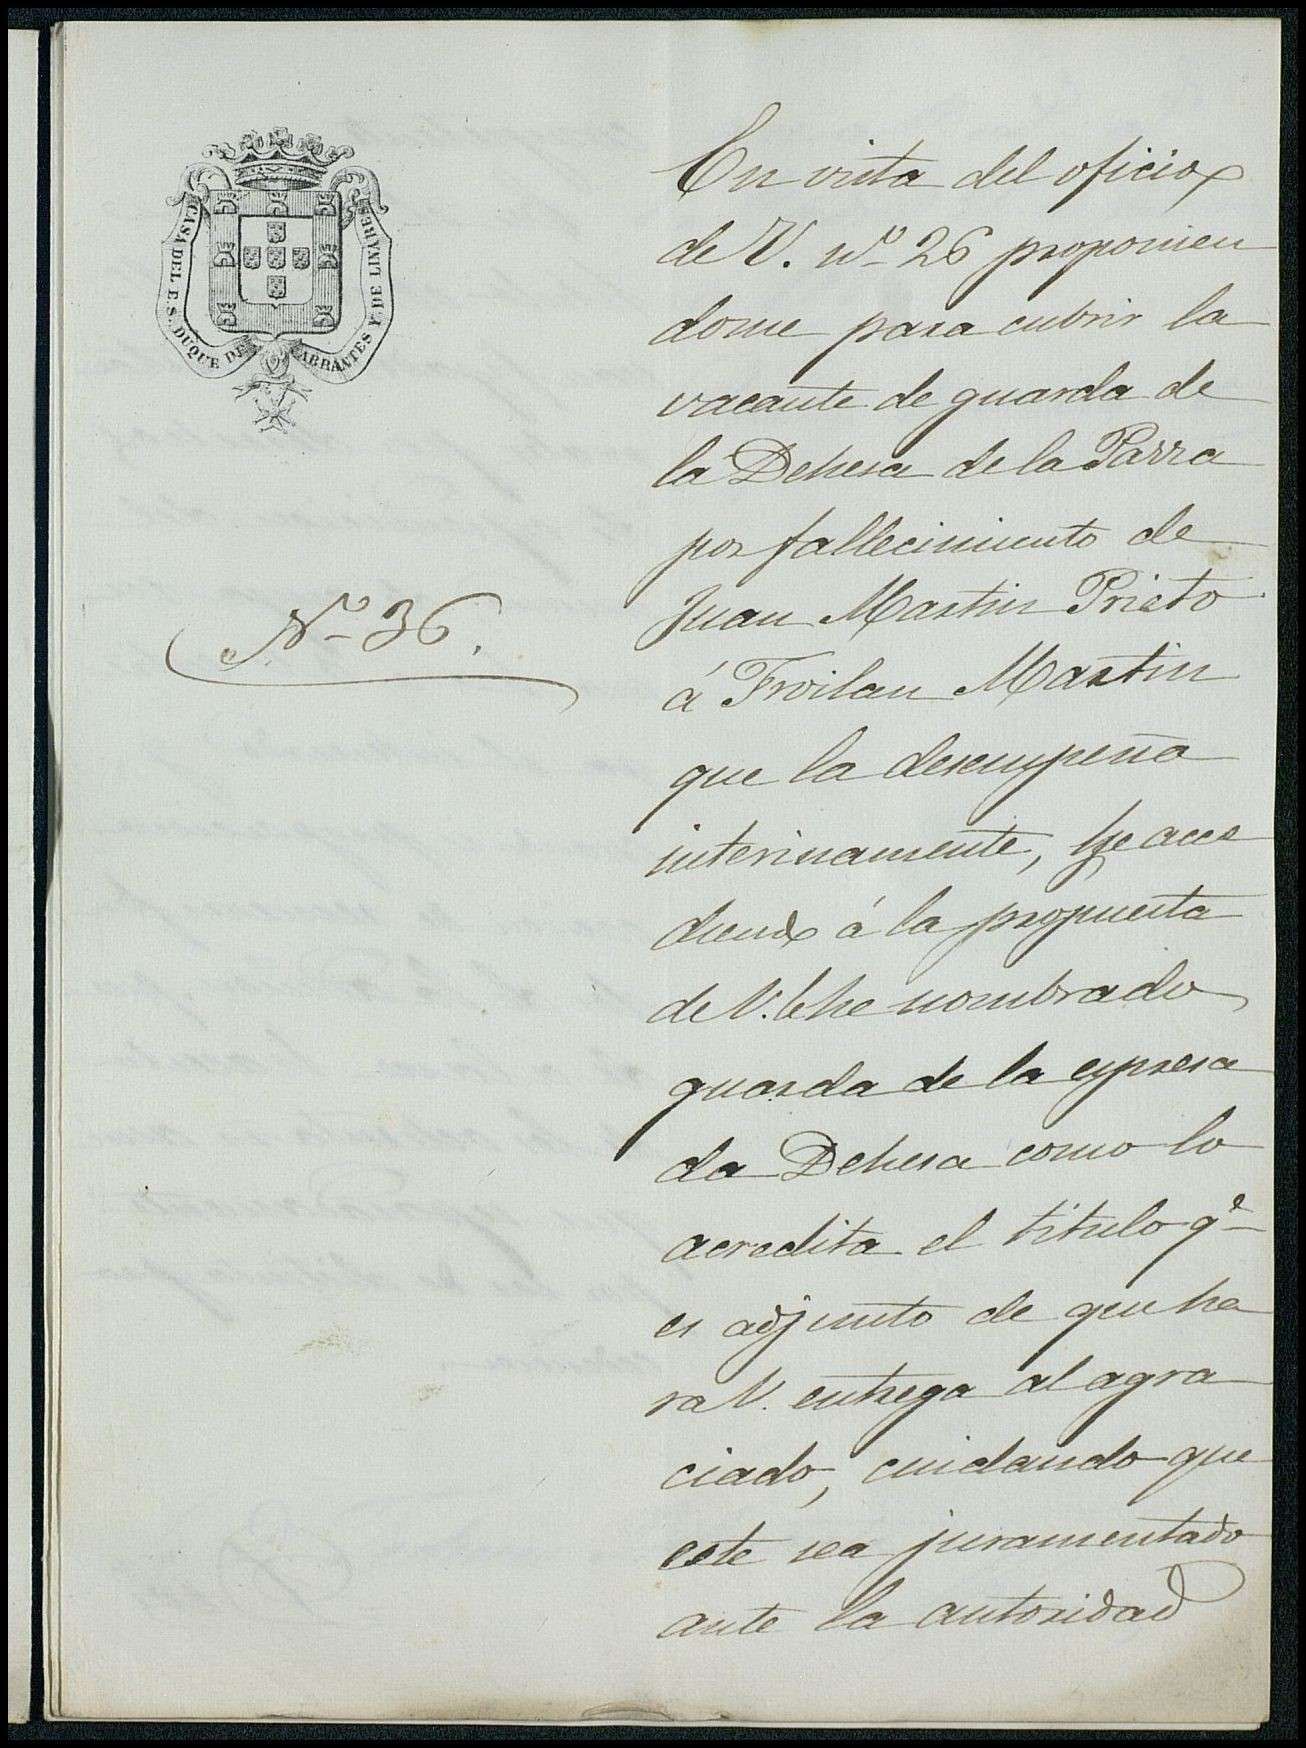 CASA DEL E. S. DUQUE DE ABRANTES Y DE LINARES
Nº 36.
En vista del oficio
de V. nº 26 proponien
dome para cubrir la
vacante de guarda de
la Dehesa de la Parra
por fallecimiento de
Juan Martin Prieto
á Froilan Martin
que la desempeña
interinamente, acce
diendo á la propuesta
de V. he nombrado
guarda de la espresa
da Dehesa como lo
acredita el titulo qe
es adjunto de que ha
ra V. entrega al agra
ciado, cuidando que
este sea juramentado
ante la autoridad